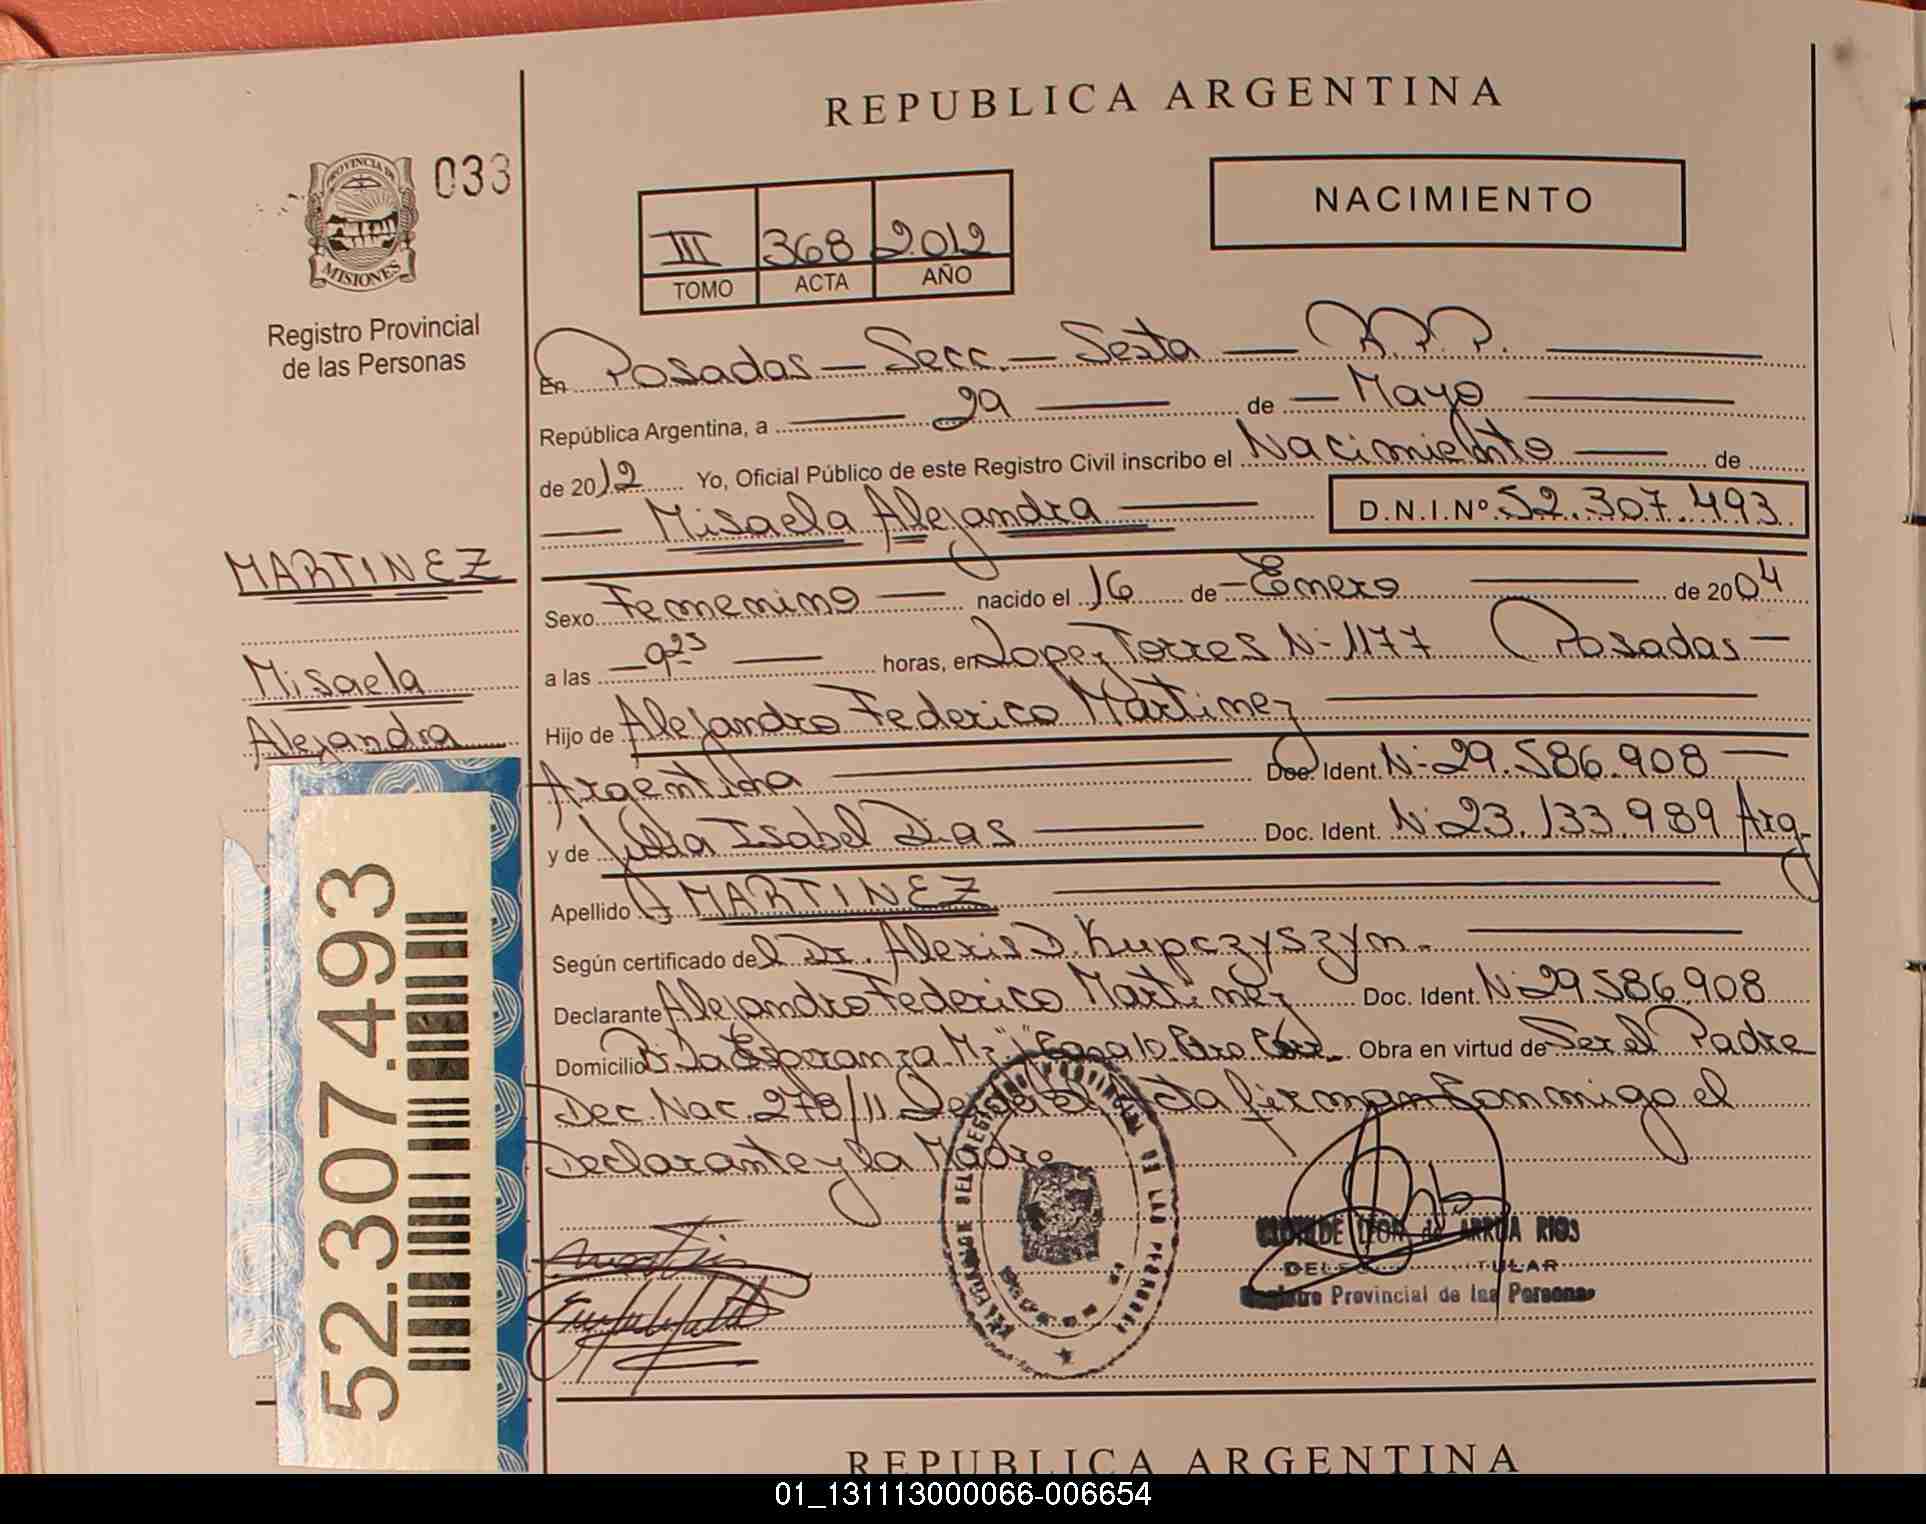 REPUBLICA ARGENTINA
PROVINCIA DE
MISIONES
033
Registro Provincial
de las Personas
III 368 2012
TOMO ACTA AÑO
NACIMIENTO
En Posadas — Secc. — Sexta — R.P.P. —
República Argentina, a — 29 — de — Mayo —
de 2012 Yo, Oficial Público de este Registro Civil inscribo el Nacimiento — de
— Misaela Alejandra — D.N.I.Nº 52.307.493
MARTINEZ
Misaela
Alejandra
Sexo Femenino — nacido el 16 de — Enero — de 2004
a las — 9 25 — horas, en Lopez Torres N- 1177 Posadas —
Hijo de Alejandro Federico Martinez —
Argentina — Doc. Ident. N- 29.586.908 —
y de Julia Isabel Dias — Doc. Ident. N- 23.133.989 Arg.
Apellido MARTINEZ —
Según certificado del Dr. Alexis D. Kupczyszyn. —
Declarante Alejandro Federico Martinez Doc. Ident. N- 29.586.908
Domicilio Bº La Esperanza Mz "J" Casa 10 Obra en virtud de Ser el Padre
Dec. Nac. 278/11 Leida el Acta firman Conmigo el
Declarante y la Madre
52.307.493
DEL REGISTRO PROVINCIAL DE LAS PERSONAS
CLOTILDE LEON de ARRUA RIOS
TITULAR
Registro Provincial de las Personas
REPUBLICA ARGENTINA
01_131113000066-006654